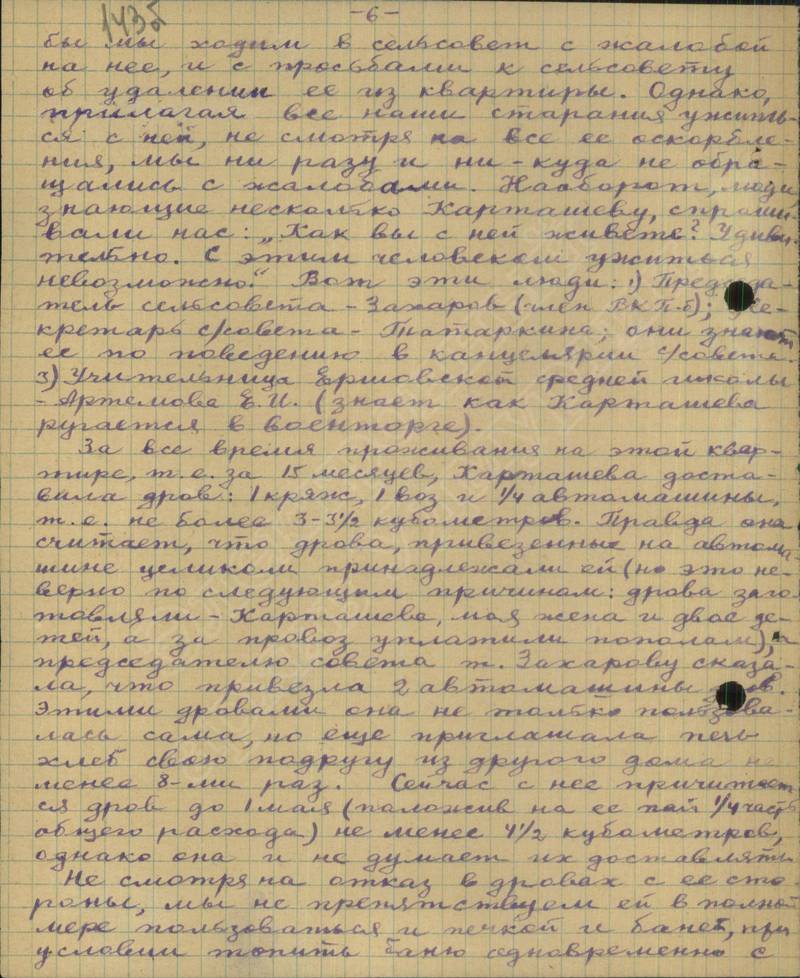 143б
-6-
бы мы ходим в сельсовет с жалобой
на нее, и с просьбами к сельсовету
об удалении ее из квартиры. Однако,
прилагая все наши старания ужить-
ся с ней, не смотря на все ее оскорбле-
ния, мы ни разу и ни-куда не обра-
щались с жалобами. Наоборот, люди
знающие несколько Карташеву, спраши-
вали нас: „Как вы с ней живете? Удиви-
тельно. С этим человеком ужиться
невозможно." Вот эти люди: 1) Председа-
тель сельсовета - Захаров (член ВКП-б); Се-
кретарь с/совета - Татаркина; они знают
ее по поведению в канцелярии с/совета.
3) Учительница Ершовской средней школы
- Артемова Е.И. (знает как Карташева
ругается в военторге).
За все время проживания на этой квар-
тире, т.е. за 15 месяцев, Карташева доста-
вила дров: 1 кряж, 1 воз и 1/4 автомашины,
т.е. не более 3-3 1/2 кубометров. Правда она
считает, что дрова, привезенные на автома-
шине целиком принадлежали ей (но это не-
верно по следующим причинам: дрова заго-
товляли - Карташева, моя жена и двое де-
тей, а за провоз уплатили пополам), а
председателю совета т. Захарову сказа-
ла, что привезла 2 автомашины дров.
Этими дровами она не только пользова-
лась сама, но еще приглашала печь
хлеб свою подругу из другого дома не
менее 8-ми раз. Сейчас с нее причитает-
ся дров до 1 мая (положив на ее пай 1/4 часть
общего расхода) не менее 4 1/2 кубометров,
однако она и не думает их доставлять.
Не смотря на отказ в дровах с ее сто-
роны, мы не препятствуем ей в полной
мере пользоваться и печкой и баней, при
условии топить баню одновременно с